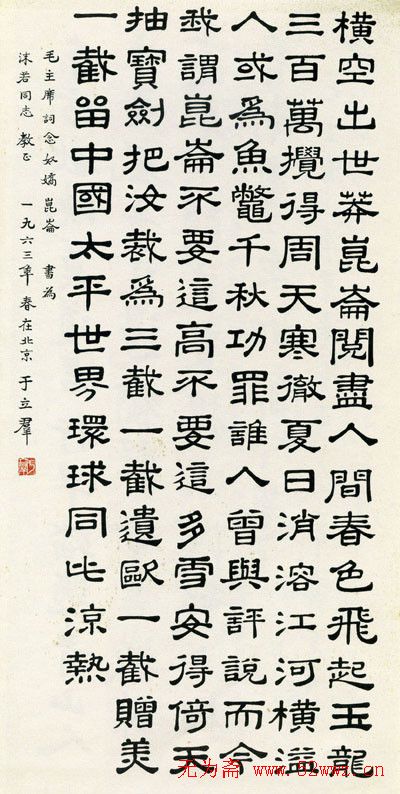 橫空出世莽崑崙閱盡人間春色飛起玉龍
三百萬攪得周天寒徹夏日消溶江河橫溢
人或爲魚鼈千秋功罪誰人曾與評說而今
我謂崑崙不要這高不要這多雪安得倚天
抽寶劍把汝裁爲三截一截遺歐一截贈美
一截留中國太平世界環球同此涼熱
毛主席詞念奴嬌崑崙 書為
沫若同志 教正 一九六三年 春在北京 于立羣
无为斋 www.82wwz.cn